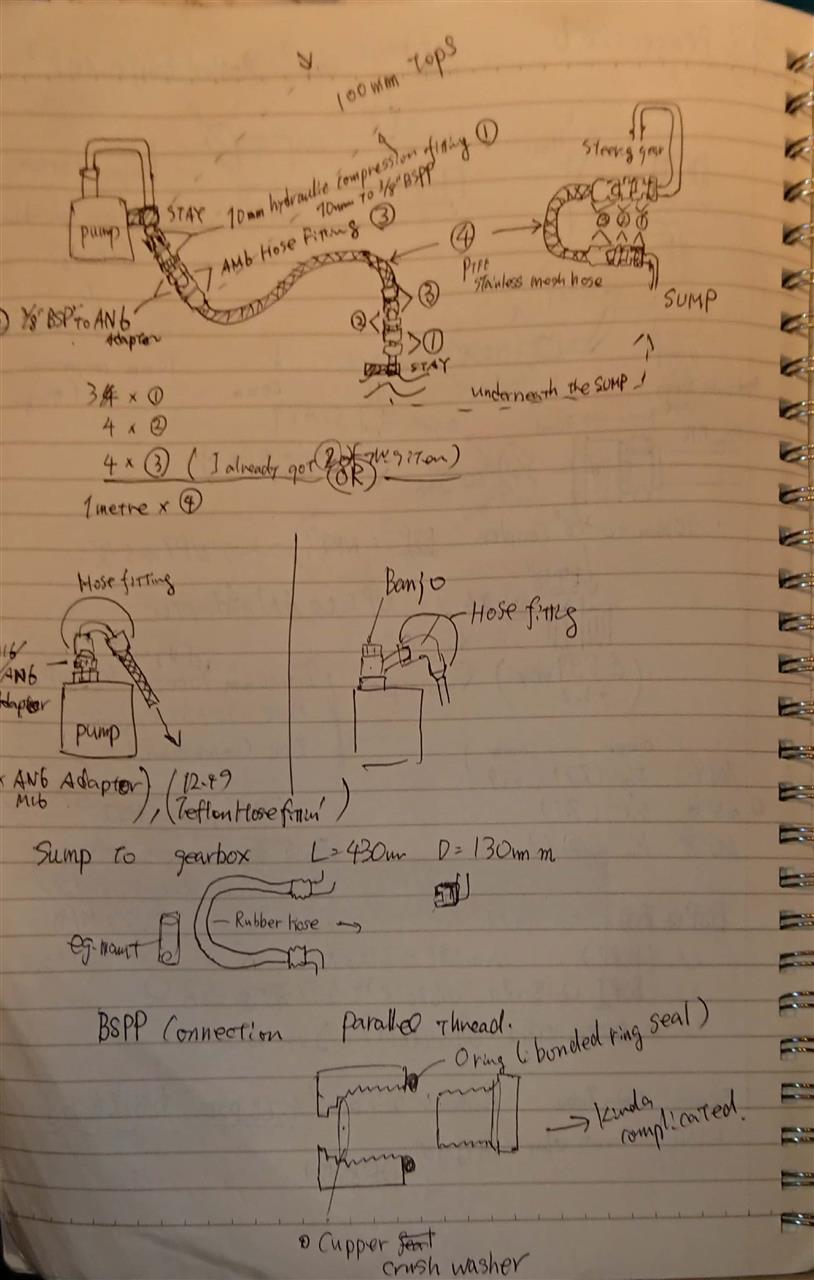 100mm Tops
10mm hydraulic compression fitting ①
10mm To 3/8" BSPP
Steering gear
pump
STAY
AN6 Hose Fitting ③
④
PTFE
stainless mesh hose
② ① 
③
②
①
STAY
SUMP
3/8" BSP To AN6
Adaptor
underneath the SUMP
3 × ①
4 × ②
4 × ③ ( I already got 2 of)
(OR)
1 metre × ④
Hose fitting
Banjo
Hose fitting
M16/
AN6
Adaptor
pump
AN6 Adaptor
M16
), ( 12.49
Teflon Hose fittin' )
Sump to gearbox L=430mm D=130mm
Rubber hose
eg.mount
BSPP Connection Parallel Thread.
O ring (: bonded ring seal)
Kinda
complicated.
Cupper
crush washer